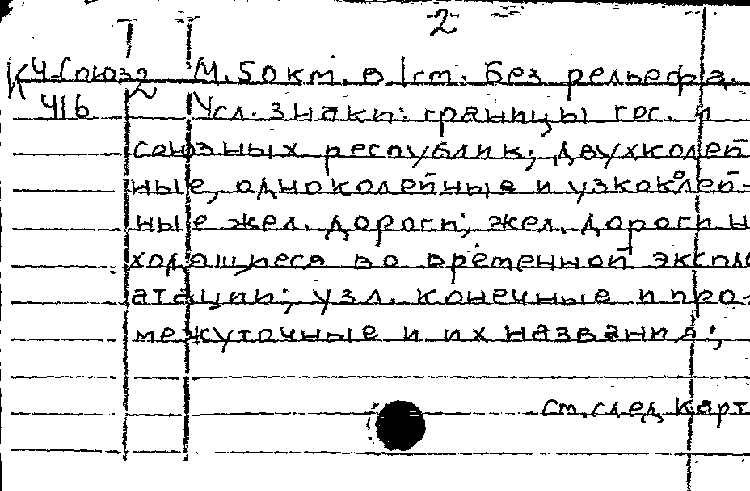 2
К4-Союз М. 50 км. в 1 см. без рельефа.
41б 2 Усл. знаки: границы гос. и
союзных республик; двухколей
ные, одноколейные и узкоколей-
ные жел. дороги; жел. дороги н
ходящиеся во временной экспл
атации; узл. конечные и про-
межуточные и их названия;
См. след карт